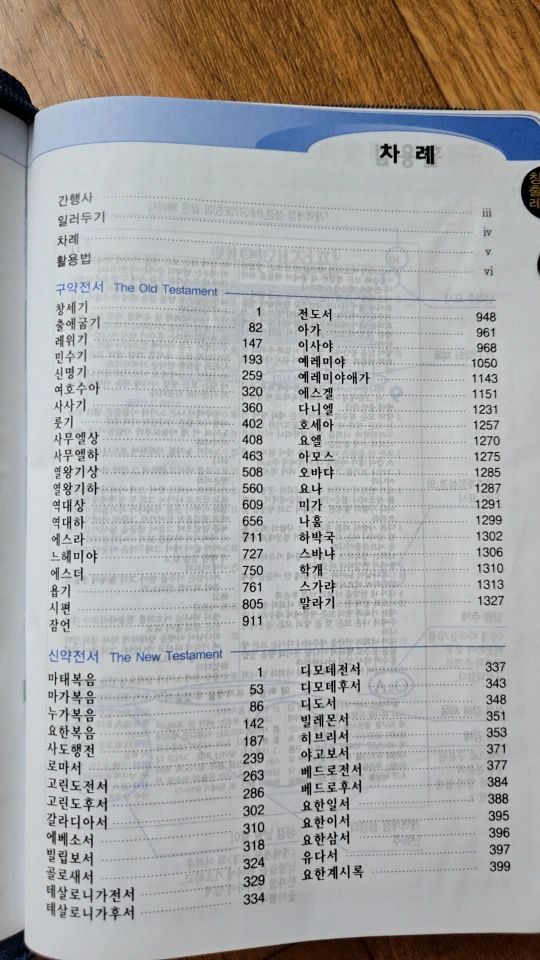 차 례
간행사 iii
일러두기 iv
차례 v
활용법 vi
구약전서 The Old Testament
창세기 1
출애굽기 82
레위기 147
민수기 193
신명기 259
여호수아 320
사사기 360
룻기 402
사무엘상 408
사무엘하 463
열왕기상 508
열왕기하 560
역대상 609
역대하 656
에스라 711
느헤미야 727
에스더 750
욥기 761
시편 805
잠언 911
전도서 948
아가 961
이사야 968
예레미야 1050
예레미야애가 1143
에스겔 1151
다니엘 1231
호세아 1257
요엘 1270
아모스 1275
오바댜 1285
요나 1287
미가 1291
나훔 1299
하박국 1302
스바냐 1306
학개 1310
스가랴 1313
말라기 1327
신약전서 The New Testament
마태복음 1
마가복음 53
누가복음 86
요한복음 142
사도행전 187
로마서 239
고린도전서 263
고린도후서 286
갈라디아서 302
에베소서 310
빌립보서 318
골로새서 324
데살로니가전서 329
데살로니가후서 334
디모데전서 337
디모데후서 343
디도서 348
빌레몬서 351
히브리서 353
야고보서 371
베드로전서 377
베드로후서 384
요한일서 388
요한이서 395
요한삼서 396
유다서 397
요한계시록 399